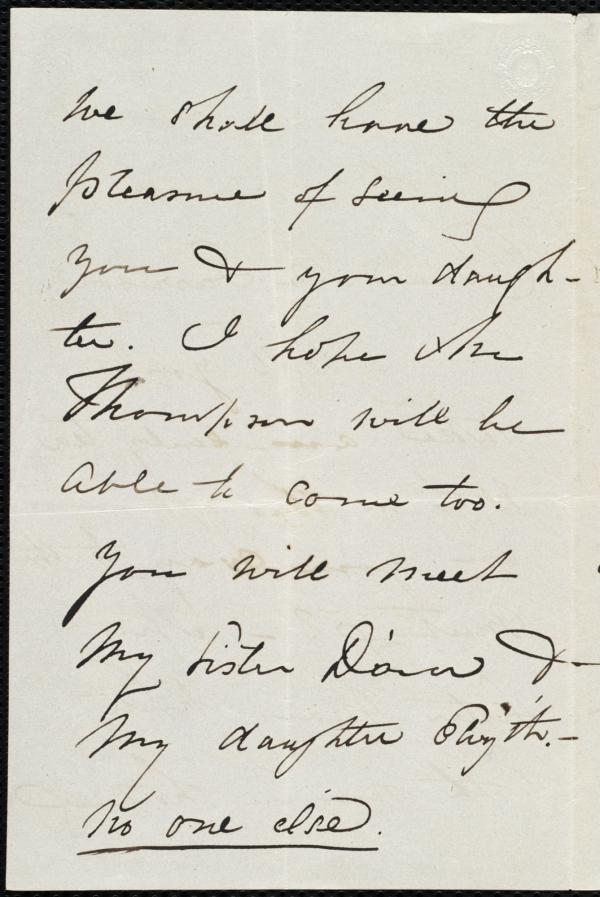 We shall have the
pleasure of seeing
you & your daugh-
ter. I hope Mr
Thompson will be
able to come too.
You will meet
my sister &
my daughter Edyth. -
no one else.